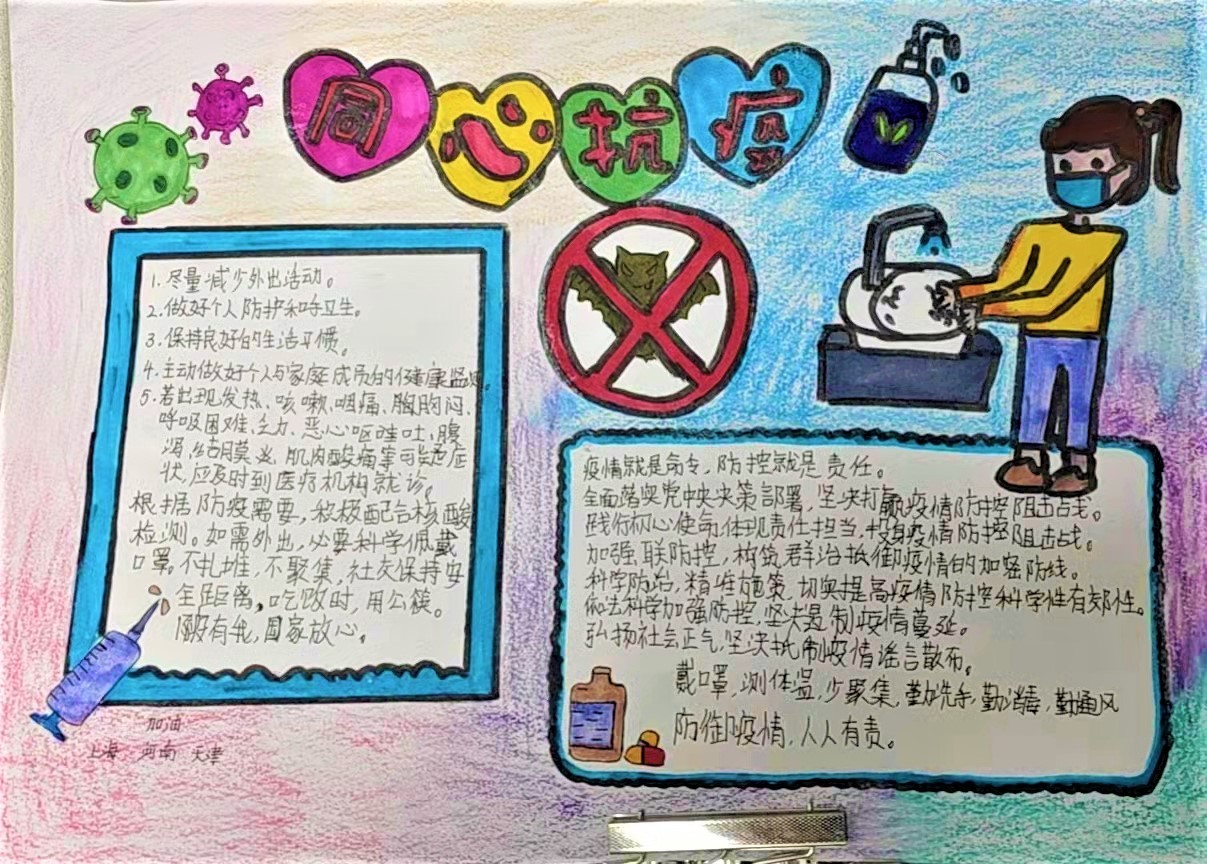 同心抗疫
1.尽量减少外出活动。
2.做好个人防护和手卫生。
3.保持良好的生活习惯。
4.主动做好个人与家庭成员的健康监测。
5.若出现发热、咳嗽、咽痛、胸闷、
呼吸困难、乏力、恶心呕吐、腹
泻、结膜炎、肌肉酸痛等可疑症
状,应及时到医疗机构就诊。
根据防疫需要,积极配合核酸
检测。如需外出,必要科学佩戴
口罩。不扎堆,不聚集,社交保持安
全距离,吃饭时,用公筷。
有我,国家放心。
加油
上海 河南 天津
疫情就是命令,防控就是责任。
全面落实党中央决策部署,坚决打赢疫情防控阻击战。
践行初心使命,体现责任担当,投身疫情防控阻击战。
加强联防控,构筑群治抵御疫情的加密防线。
科学防治,精准施策,切实提高疫情防控科学性有效性。
依法科学加强防控,坚决遏制疫情蔓延。
弘扬社会正气,坚决抵制疫情谣言散布。
戴口罩,测体温,少聚集,勤洗手,勤消毒,勤通风
防御疫情,人人有责。